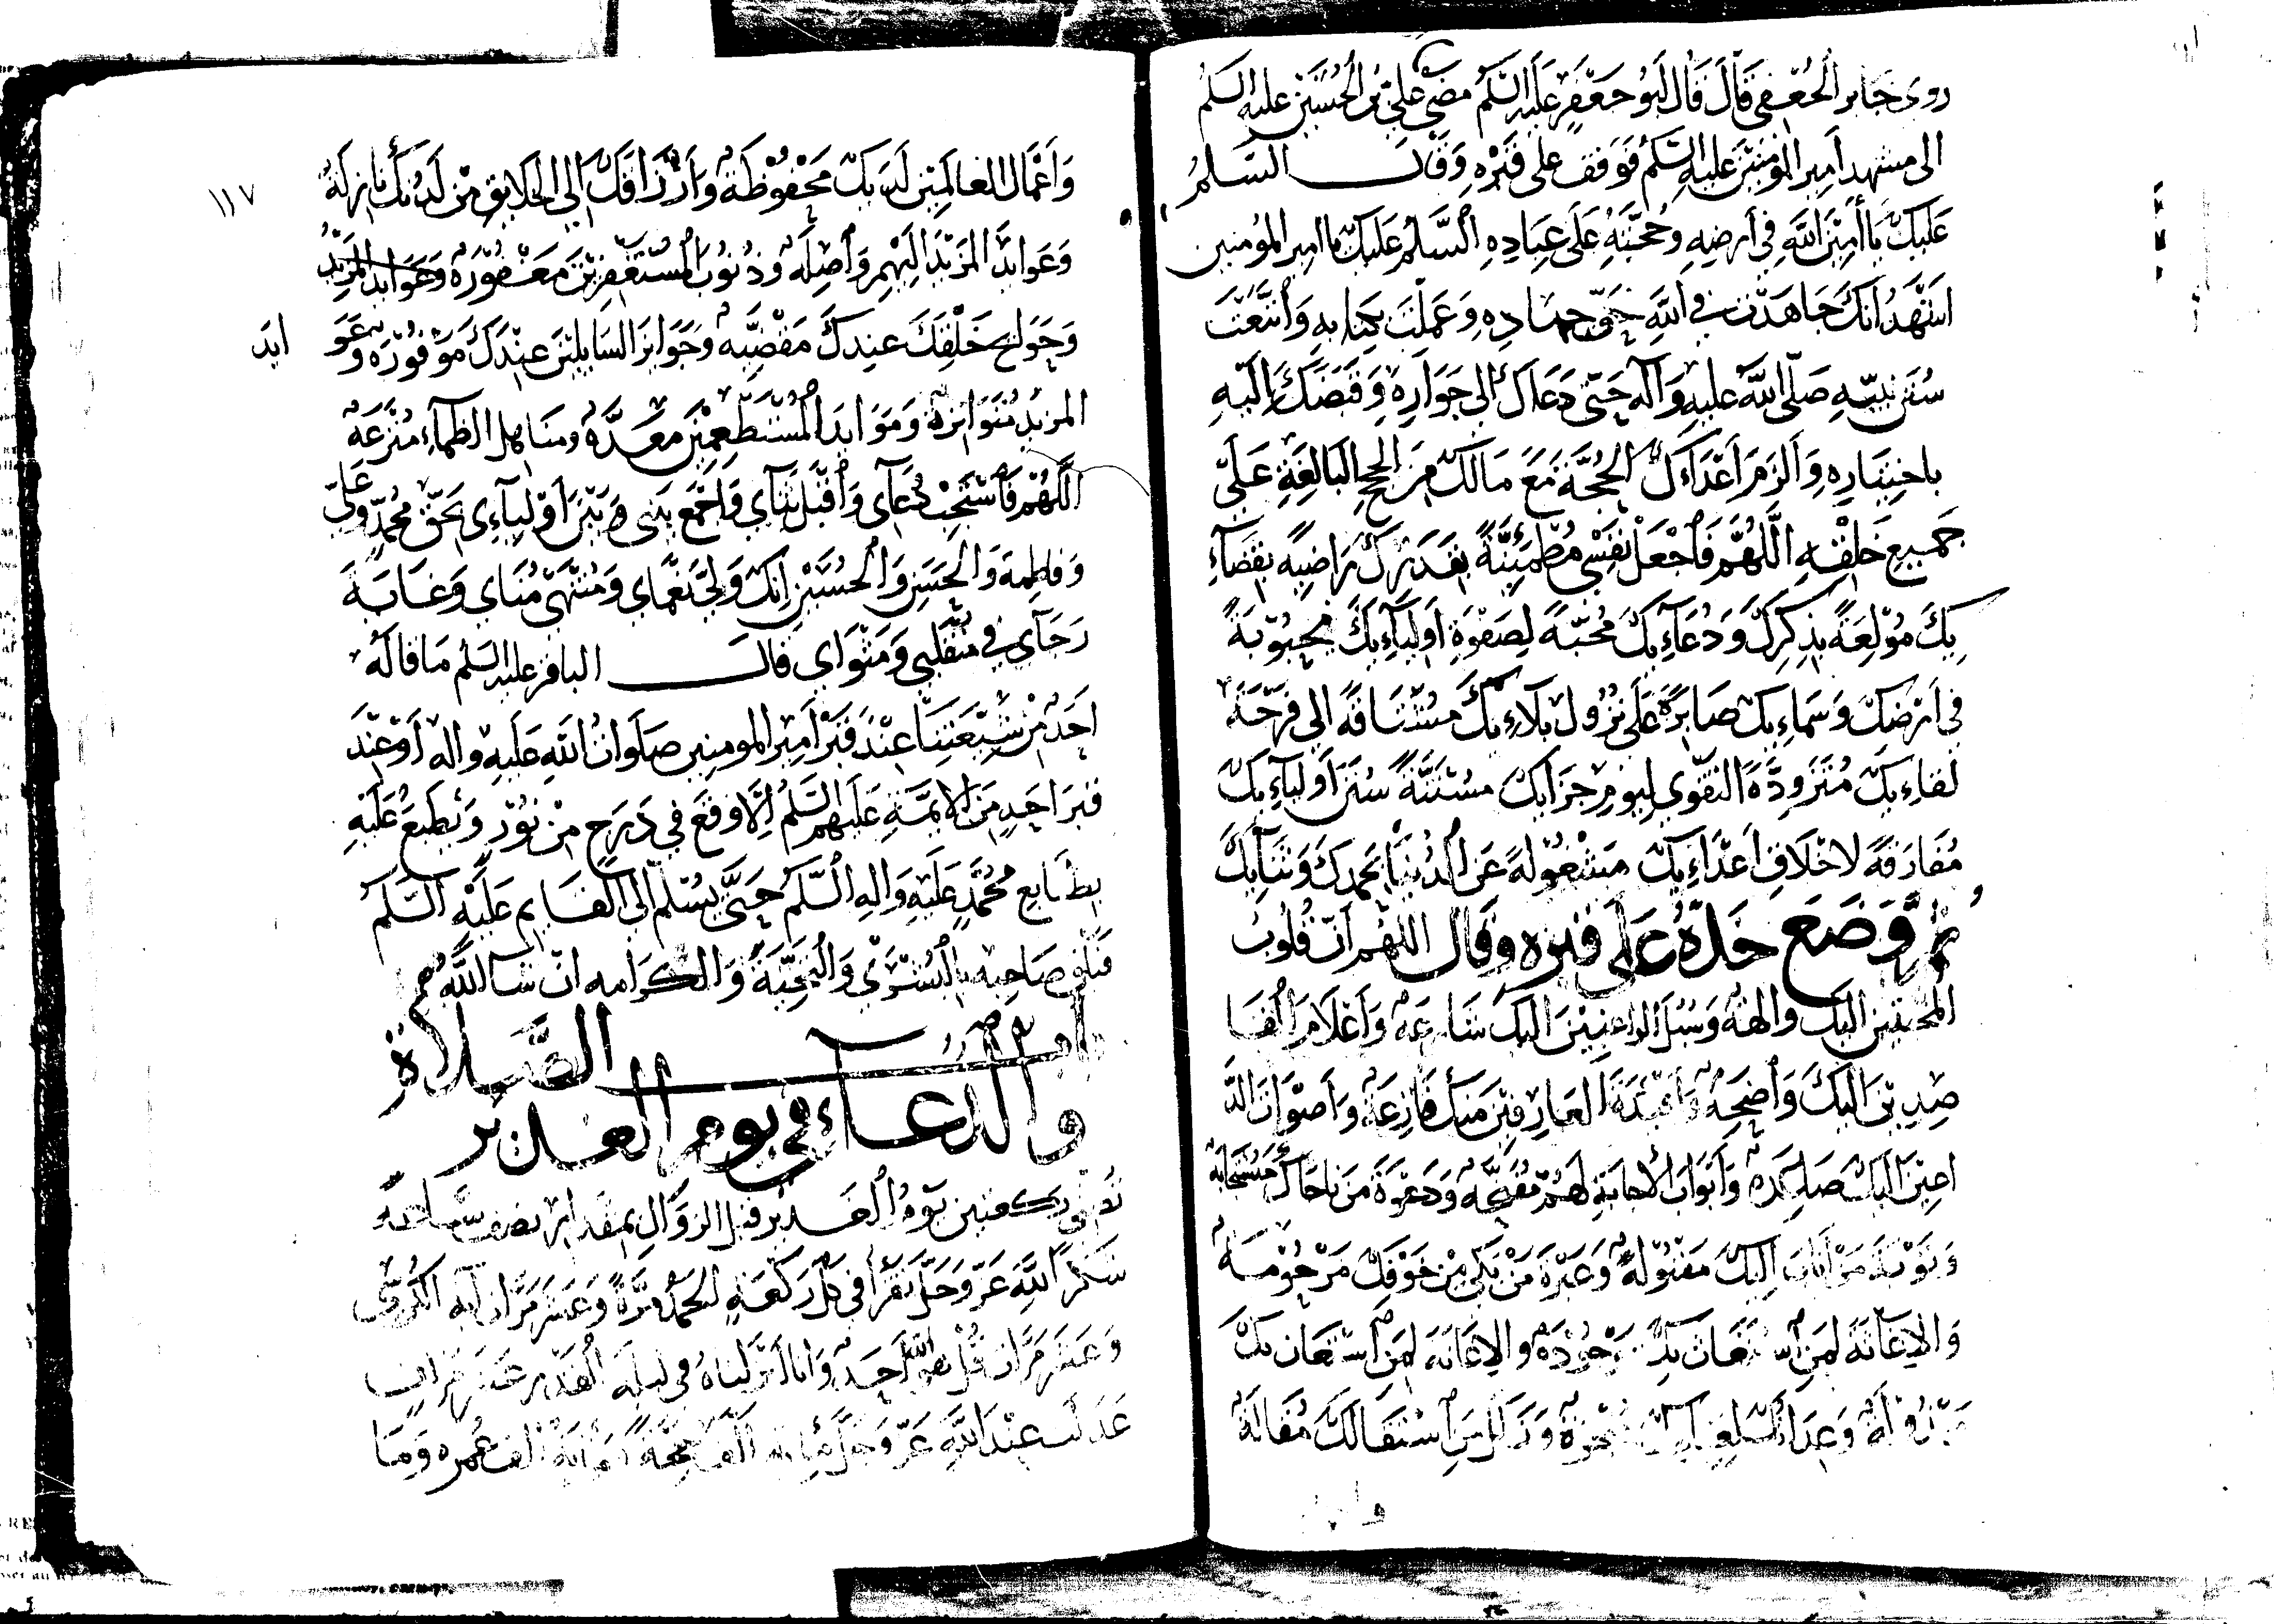 روى جابر الجعفي قال قال ابو جعفر عليه السلم مضى علي بن الحسين عليه السلم
الى مشهد امير المومنين عليه السلم فوقف على قبره وقال السلم
عَلَيك يا أمين الله في أرضه وحجته على عباده السلم عليك يا امير المؤمنين
اشهد انك جاهدت في الله حق جهاده وعملت بكتابه واتبعت
سنن نبيه صلى الله عليه وآله حتى دعاك الى جواره وقبضك اليه
باختياره والزم اعداءك الحجة مع مالك من الحجج البالغة على
جميع خلقه اللهم فاجعل نفسي مطمئنة بقدرك راضية بقضاء
بك مولعة بذكرك ودعاءبك محبة لصفوة اولياءبك محبوبة
في ارضك وسماءبك صابرة على نزول بلاءبك مشتاقة الى فرحة
لقاءبك متزودة التقوى ليوم جزابك مستنة سنن اولياءبك
مفارقة لاخلاق اعداءبك مشغولة عن الدنيا بحمدك وثنابك
ثم وضع خده على قبره وقال اللهم ان قلوب
المخبتين اليك والهة وسبل الراغبين اليك شارعة واعلام القا
صدين اليك واضحة وافئدة العارفين منك فازعة واصوات الدا
اعين اليك صاعدة وابواب الاجابة لهم مفتحة ودعوة من ناجاك مستجابة
وتوبة من اناب اليك مقبولة وعبرة من بكى من خوفك مرحومة
والاغاثة لمن استغاث بك موجودة والاعانة لمن استعان بك
مبذولة وعداتك لعبادك منجزة وزلل من استقالك مقالة
وَأعمال العاملين لديك محفوظة وارزاقك الى الخلايق من لدنك نازلة
١١٧
وعوايد المزيد اليهم واصلة وذنوب المستغفرين مغفورة وعوايد المزيد
وحوايج خلقك عندك مقضية وجوايز السايلين عندك موفورة وعو
ايد
المزيد متواترة وموايد المستطعمين معدة ومناهل الظماء مترعة
اللهم فاستجب دعآي واقبل ثنآي واجمع بيني وبين اولياءي بحق محمد وعلي
وفاطمة والحسن والحسين انك ولي نعماي ومنتهى مناي وغاية
رجآي في منقلبي ومثواي قال الباقر عليه السلم ما قاله
احد من شيعتنا عند قبر امير المومنين صلوات الله عليه واله او عند
قبر احد من الايمة عليهم السلم الا وقع في درج من نور وطبع عليه
بطابع محمد عليه واله السلم حتى يسلم الى القايم عليه السلم
فيلقى صاحبه بالبشرى والتحية والكرامه ان شا الله
الصلاة
والدعاء في يوم الغدير
تصلي ركعتين يوم الغدير قبل الزوال بمقدار نصف ساعة
شكرا لله عز وجل تقرأ في كل ركعة الحمد مرة وعشر مرات آية الكرسي
وعشر مرات قل هو الله احد وانا انزلناه في ليلة القدر عشر مرات
عدلت عند الله عز وجل مائة الف حجة ومائة الف عمره وما